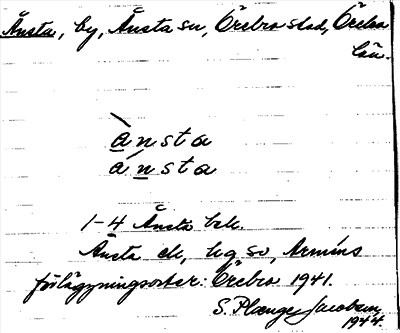 Ånsta, by, Ånsta sn, Örebro stad, Örebro
län.
ànsta
ánsta
1-4 Ånsta beb.
Ånsta
förläggningsorter: Örebro 1941.
S. Plænge Jacobson
1944.